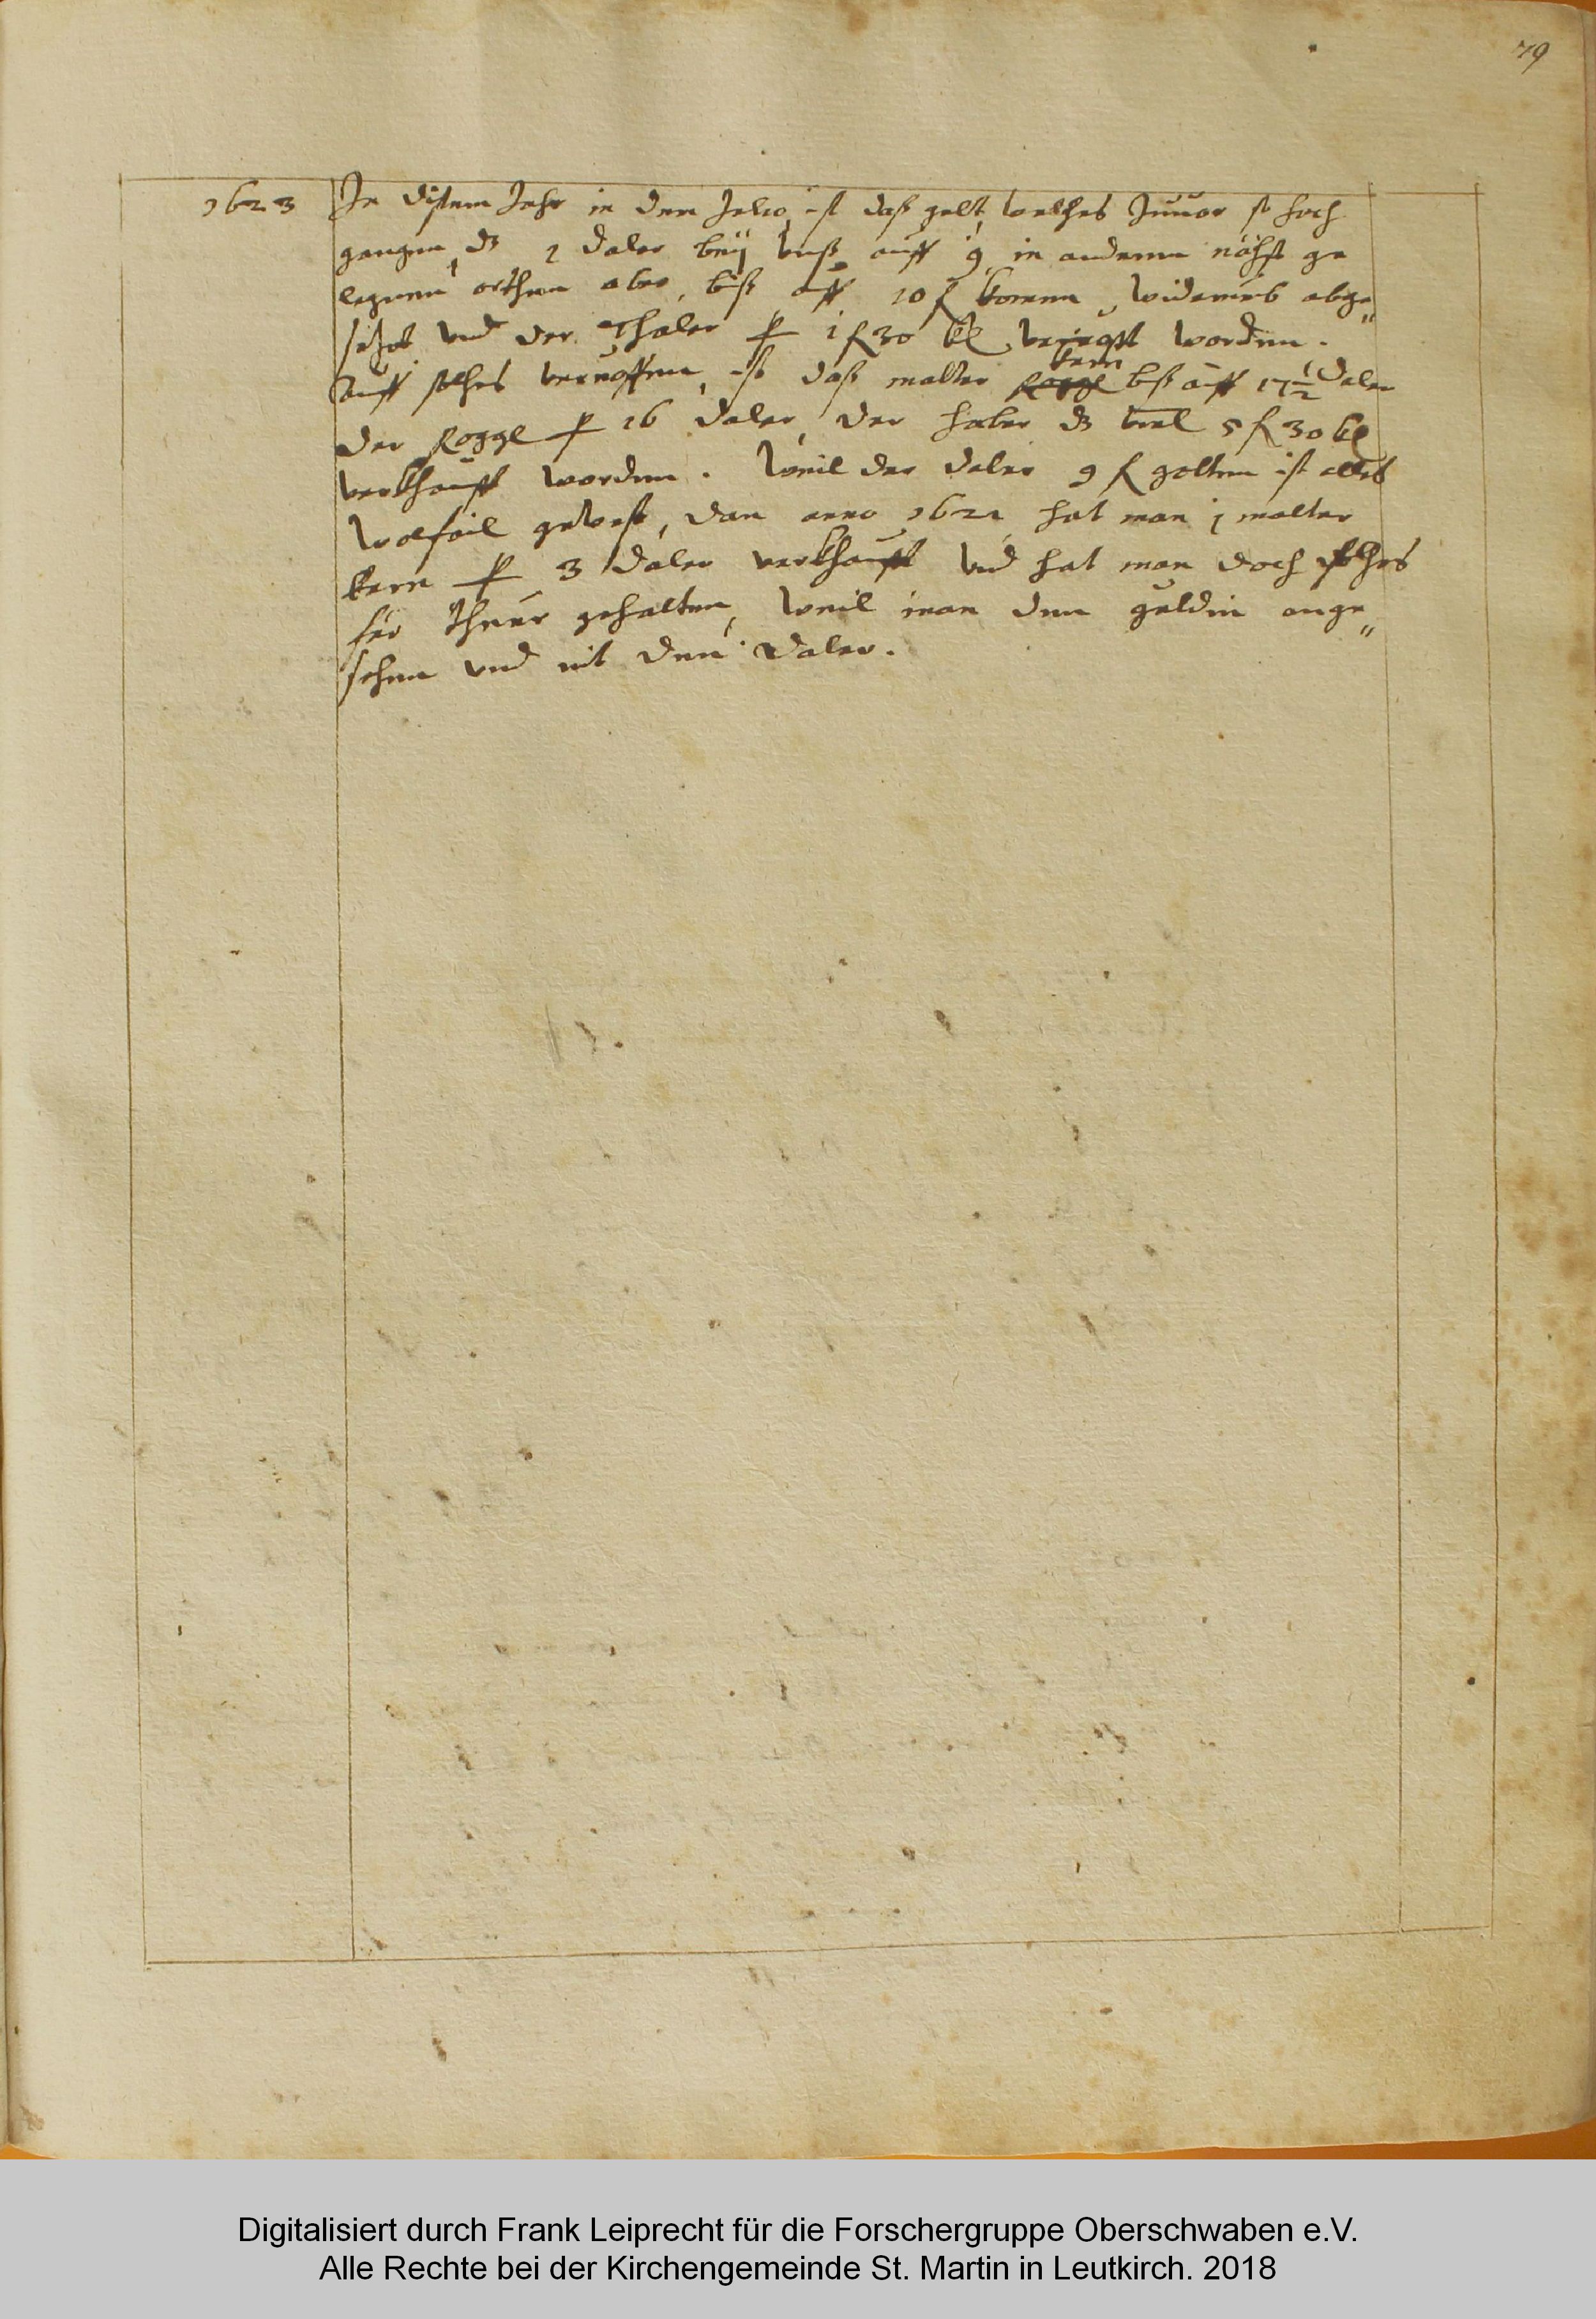 79
1623 In disem Jahr in dem Julio, ist daß gelt, welches zuuor so hoch
gangen, dz 1 daler beÿ unß auff 9, in andern nöhst ge
legnen orthen aber, biß auff 10 f komen, widerumb abge„
setzt und der Thaler p 1 f 30 kr verruofft worden.
Auff solhes verruoffen, ist daß malter kern biß auff 17 1/2 daler
der Roggen p 16 daler, der haber dz 5 f 30 kr
verkhaufft worden. Weil der daler 9 f golten ist alles
wolfail gewest, dan anno 1621 hat man 1 malter
kern p 3 daler verkhaufft und hat man doch solhes
für theur gehalten, weil man den guldin ange„
sehen und nit den daler.
Digitalisiert durch Frank Leiprecht für die Forschergruppe Oberschwaben e.V.
Alle Rechte bei der Kirchengemeinde St. Martin in Leutkirch. 2018